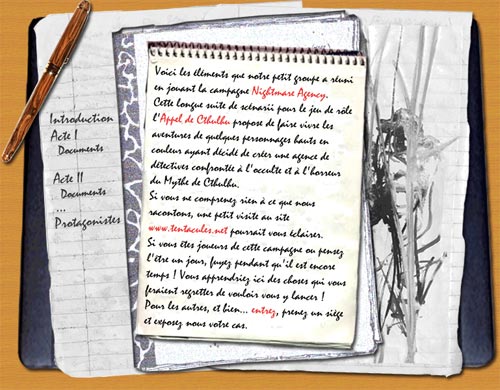 Introduction
Acte I
Documents
Acte II
Documents
...
Protagonistes
Voici les éléments que notre petit groupe a réuni
en jouant la campagne Nightmare Agency.
Cette longue suite de scénarii pour le jeu de rôle
l'Appel de Cthulhu propose de faire vivre les
aventures de quelques personnages hauts en
couleur ayant décidé de créer une agence de
détectives confrontée à l'occulte et à l'horreur
du Mythe de Cthulhu.
Si vous ne comprenez rien à ce que nous
racontons, une petit visite au site
www.tentacules.net pourrait vous éclairer.
Si vous êtes joueurs de cette campagne ou pensez
l'être un jour, fuyez pendant qu'il est encore
temps ! Vous apprendriez ici des choses qui vous
feraient regretter de vouloir vous y lancer !
Pour les autres, et bien... entrez, prenez un siège
et exposez nous votre cas.